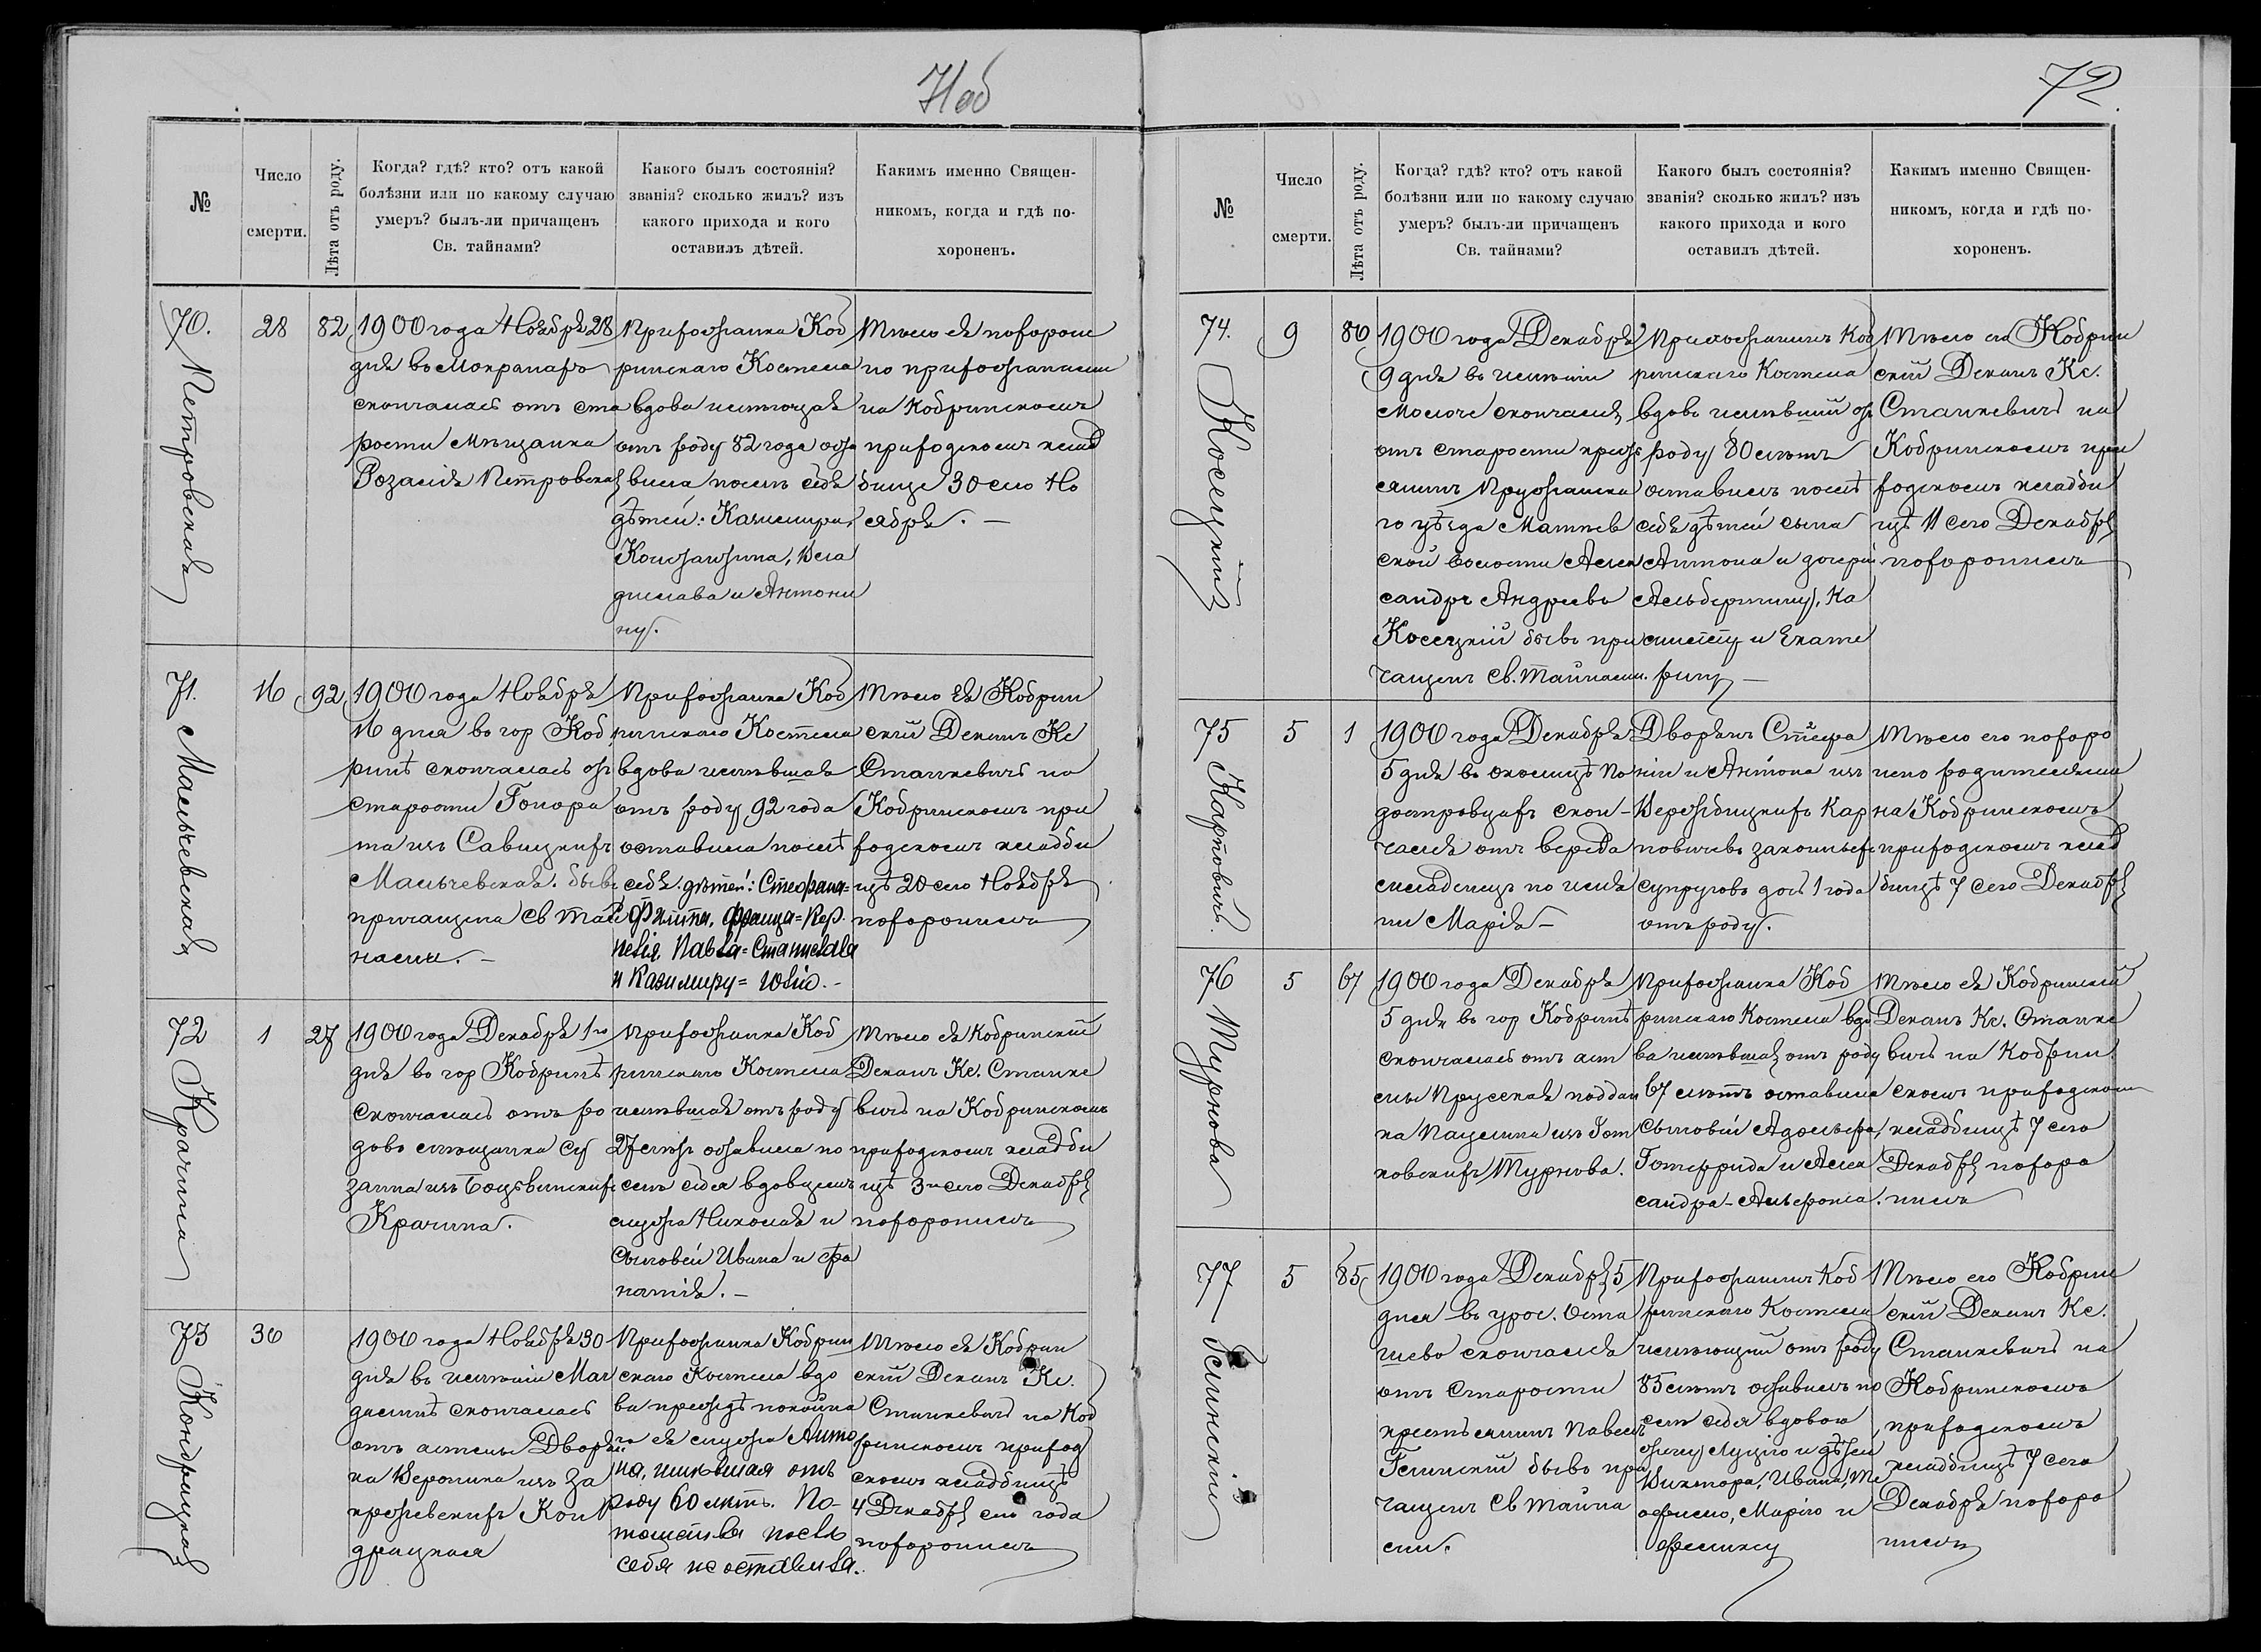 72.
№
Число
смерти.
Лѣта отъ роду.
Когда? гдѣ? кто? отъ какой
болѣзни или по какому случаю
умеръ? былъ-ли причащенъ
Св. тайнами?
Какого былъ состоянія?
званія? сколько жилъ? изъ
какого прихода и кого
оставилъ дѣтей.
Какимъ именно Священ-
никомъ, когда и гдѣ по-
хороненъ.
70. Петровская
28
82
1900 года Ноября 28
дня въ Мокранахъ
скончалась отъ ста
рости мѣщанка
Розалія Петровская
Прихожанка Коб
ринскаго Костела
вдова имѣющая
отъ роду 82 года оста
вила послѣ себя
дѣтей: Казимира,
Констанцина, Вла
дислава и Антони
ну.
Тѣло ея похороне
но прихожанами
на Кобринскомъ
приходскомъ клад
бище 30 сего Но
ября. —
71. Мальчевская
16
92
1900 года Ноября
16 дня въ гор Коб
ринѣ скончалась отъ
старости Гонора
та изъ Савицкихъ
Мальчевская. бывъ
причащена Св тай
нами. —
Прихожанка Коб
ринскаго Костела
вдова имѣвшая
отъ роду 92 года
оставила послѣ
себя дѣтей: Стефана=
Филиппа, Франца=Кор
нелія, Павла=Станислава
и Казимиру=Юлію. -
Тѣло Ея Кобрин
скій Деканъ Кс
Станкевичъ на
Кобринскомъ при
ходскомъ кладби
щѣ 20 сего Ноября
похоронилъ
72 Крачина
1
27
1900 года Декабря 1го
дня въ гор Кобринѣ
скончалась отъ ро
довъ мѣщанка Су
занна изъ
Крачина.
Прихожанка Коб
ринскаго Костела
имѣвшая отъ роду
27 лѣтъ оставила по
слѣ себя вдовцемъ
мужа Николая и
сыновей Ивана и Фа
натія. —
Тѣло ея Кобринскій
Деканъ Кс. Станке
вичъ на Кобринскомъ
приходскомъ кладби
щѣ 3го сего Декабря
похоронилъ
73 Кондрацкая
30
1900 года Ноября 30
дня въ имѣніи Маг
далинѣ скончалась
отъ астмы Дворян
ка Вероника изъ За
кржевскихъ Кон
драцкая
Прихожанка Кобрин
скаго Костела вдо
ва прежде покойна
го ея мужа Анто
на, имѣвшая отъ
роду 60 лѣтъ. По-
томства послѣ
себя не оставила.
Тѣло ея Кобрин
скій Деканъ Кс.
Станкевичъ на Коб
ринскомъ приход
скомъ кладбищѣ
4 Декабря сего года
похоронилъ
№
Число
смерти.
Лѣта отъ роду.
Когда? гдѣ? кто? отъ какой
болѣзни или по какому случаю
умеръ? былъ-ли причащенъ
Св. тайнами?
Какого былъ состоянія?
званія? сколько жилъ? изъ
какого прихода и кого
оставилъ дѣтей.
Какимъ именно Священ-
никомъ, когда и гдѣ по-
хороненъ.
74. Косецкій
9
80
1900 года Декабря
9 дня въ имѣніи
скончался
отъ старости кресть
янинъ Пружанска
го уѣзда Матѣев
ской волости Алек
сандръ Андреевъ
Косецкій бывъ при
чащенъ Св. Тайнами.
Прихожанинъ Коб
ринскаго Костела
вдовъ имѣвшій отъ
роду 80 лѣтъ
оставилъ послѣ
себя дѣтей сына
Антона и дочери
Альбертину, Ка
милію и Екате
рину —
Тѣло его Кобрин
скій Деканъ Кс.
Станкевичъ на
Кобринскомъ при
ходскомъ кладби
щѣ 11 сего Декабря
похоронилъ
75 Карповичъ.
5
1
1900 года Декабря
5 дня въ околицѣ По
дастровцахъ скон-
чался отъ вереда
младенецъ по имя
ни Марія —
Дворянъ Стефа
ніи и Антона изъ
Вержбицкихъ Кар
повичевъ законныхъ
супруговъ дочь 1 года
отъ роду.
Тѣло его похоро
нено родителями
на Кобринскомъ
приходскомъ клад
бищѣ 7 сего Декабря
76 Турнова
5
67
1900 года Декабря
5 дня въ гор Кобринѣ
скончалась отъ аст
мы Прусская поддан
ка Паулина изъ
ковскихъ Турнова.
Прихожанка Коб
ринскаго Костела вдо
ва имѣвшая отъ роду
67 лѣтъ оставила
сыновей Адольфа,
Готфрида и Алек
сандра-Альфонса.
Тѣло ея Кобринскій
Деканъ Кс. Станке
вичъ на Кобрин
скомъ приходскомъ
кладбищѣ 7 сего
Декабря похоро
нилъ
77 Глинскій
5
85
1900 года Декабря 5
дня въ урос. Оста
шево скончался
отъ старости
крестьянинъ Павелъ
Глинскій бывъ при
чащенъ Св Тайна
ми.
Прихожанинъ Коб
ринскаго Костела
имѣющій отъ роду
85 лѣтъ оставилъ по
слѣ себя вдовою
жену Луцію и дѣтей
Виктора, Ивана, Те
офилю, Марію и
Феликсу
Тѣло его Кобрин
скій Деканъ Кс.
Станкевичъ на
Кобринскомъ
приходскомъ
кладбищѣ 7 сего
Декабря похоро
нилъ